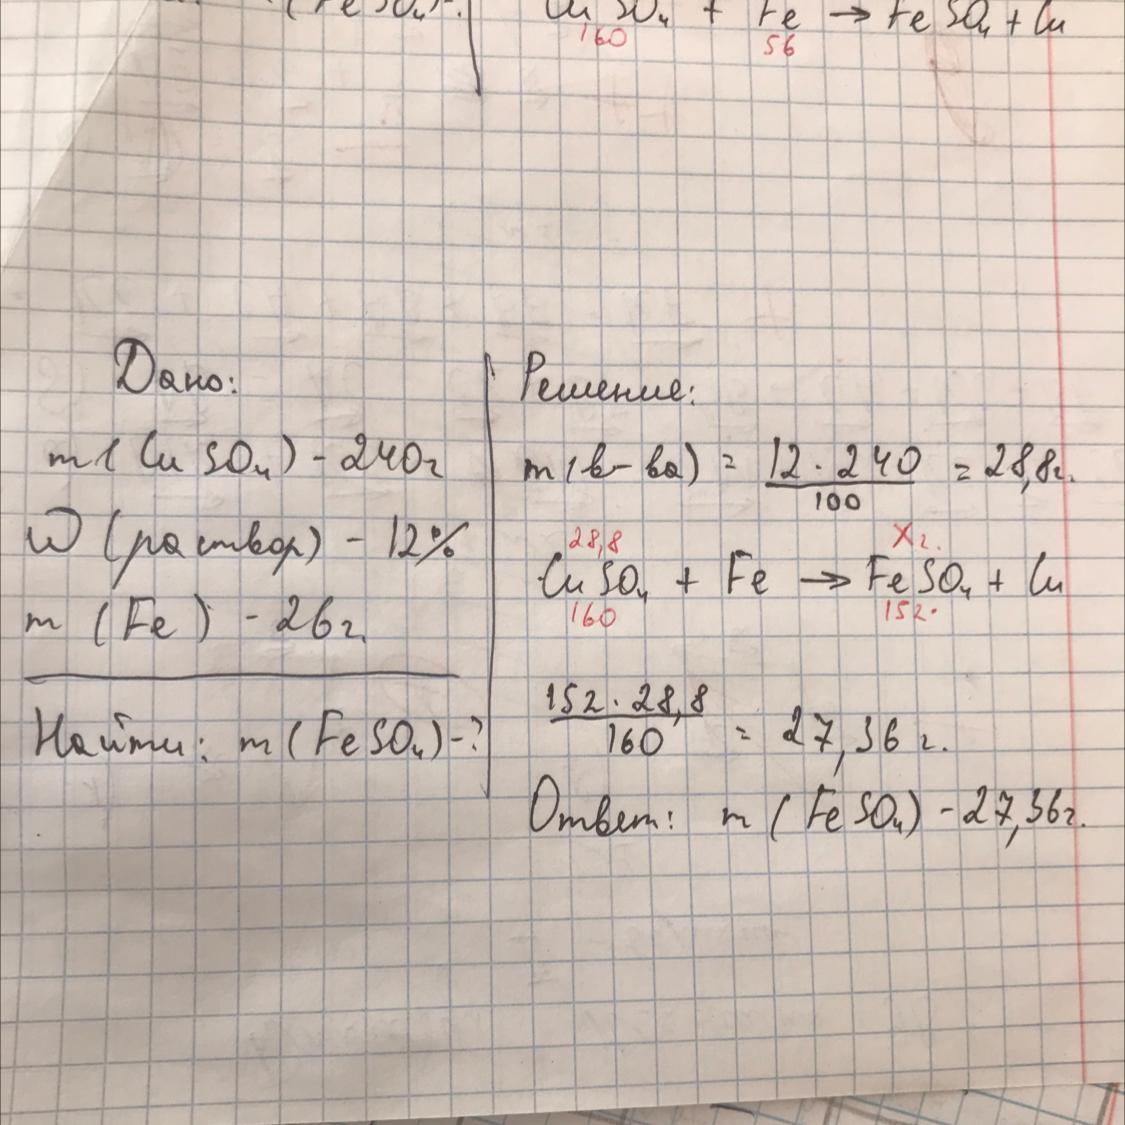 (FeSO₄)-?
CuSO₄ + Fe → FeSO₄ + Cu
160 56
Дано:
m (CuSO₄) - 240г
W (раствор) - 12%
m (Fe) - 26г.
Найти: m (FeSO₄) -?
Решение:
m (в-ва) = 12 · 240 / 100 = 28,8г.
28,8 Xг.
CuSO₄ + Fe → FeSO₄ + Cu
160 152.
152 · 28,8 / 160 = 27,36 г.
Ответ: m (FeSO₄) - 27,36г.